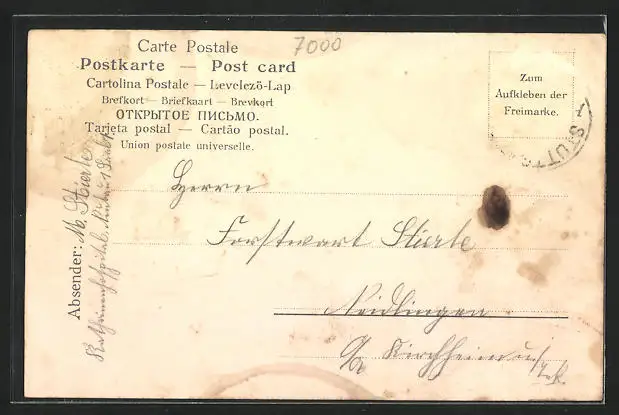 Carte Postale
7000
Postkarte — Post card
Cartolina Postale — Levelező-Lap
Brefkort — Briefkaart — Brevkort
ОТКРЫТОЕ ПИСЬМО.
Tarjeta postal — Cartão postal.
Union postale universelle.
Zum
Aufkleben der
Freimarke.
STUTT
Herrn
Forstwart Stierle
Neidlingen
Kirchheim u/
Absender: M. Stierle
Katharinenhospital